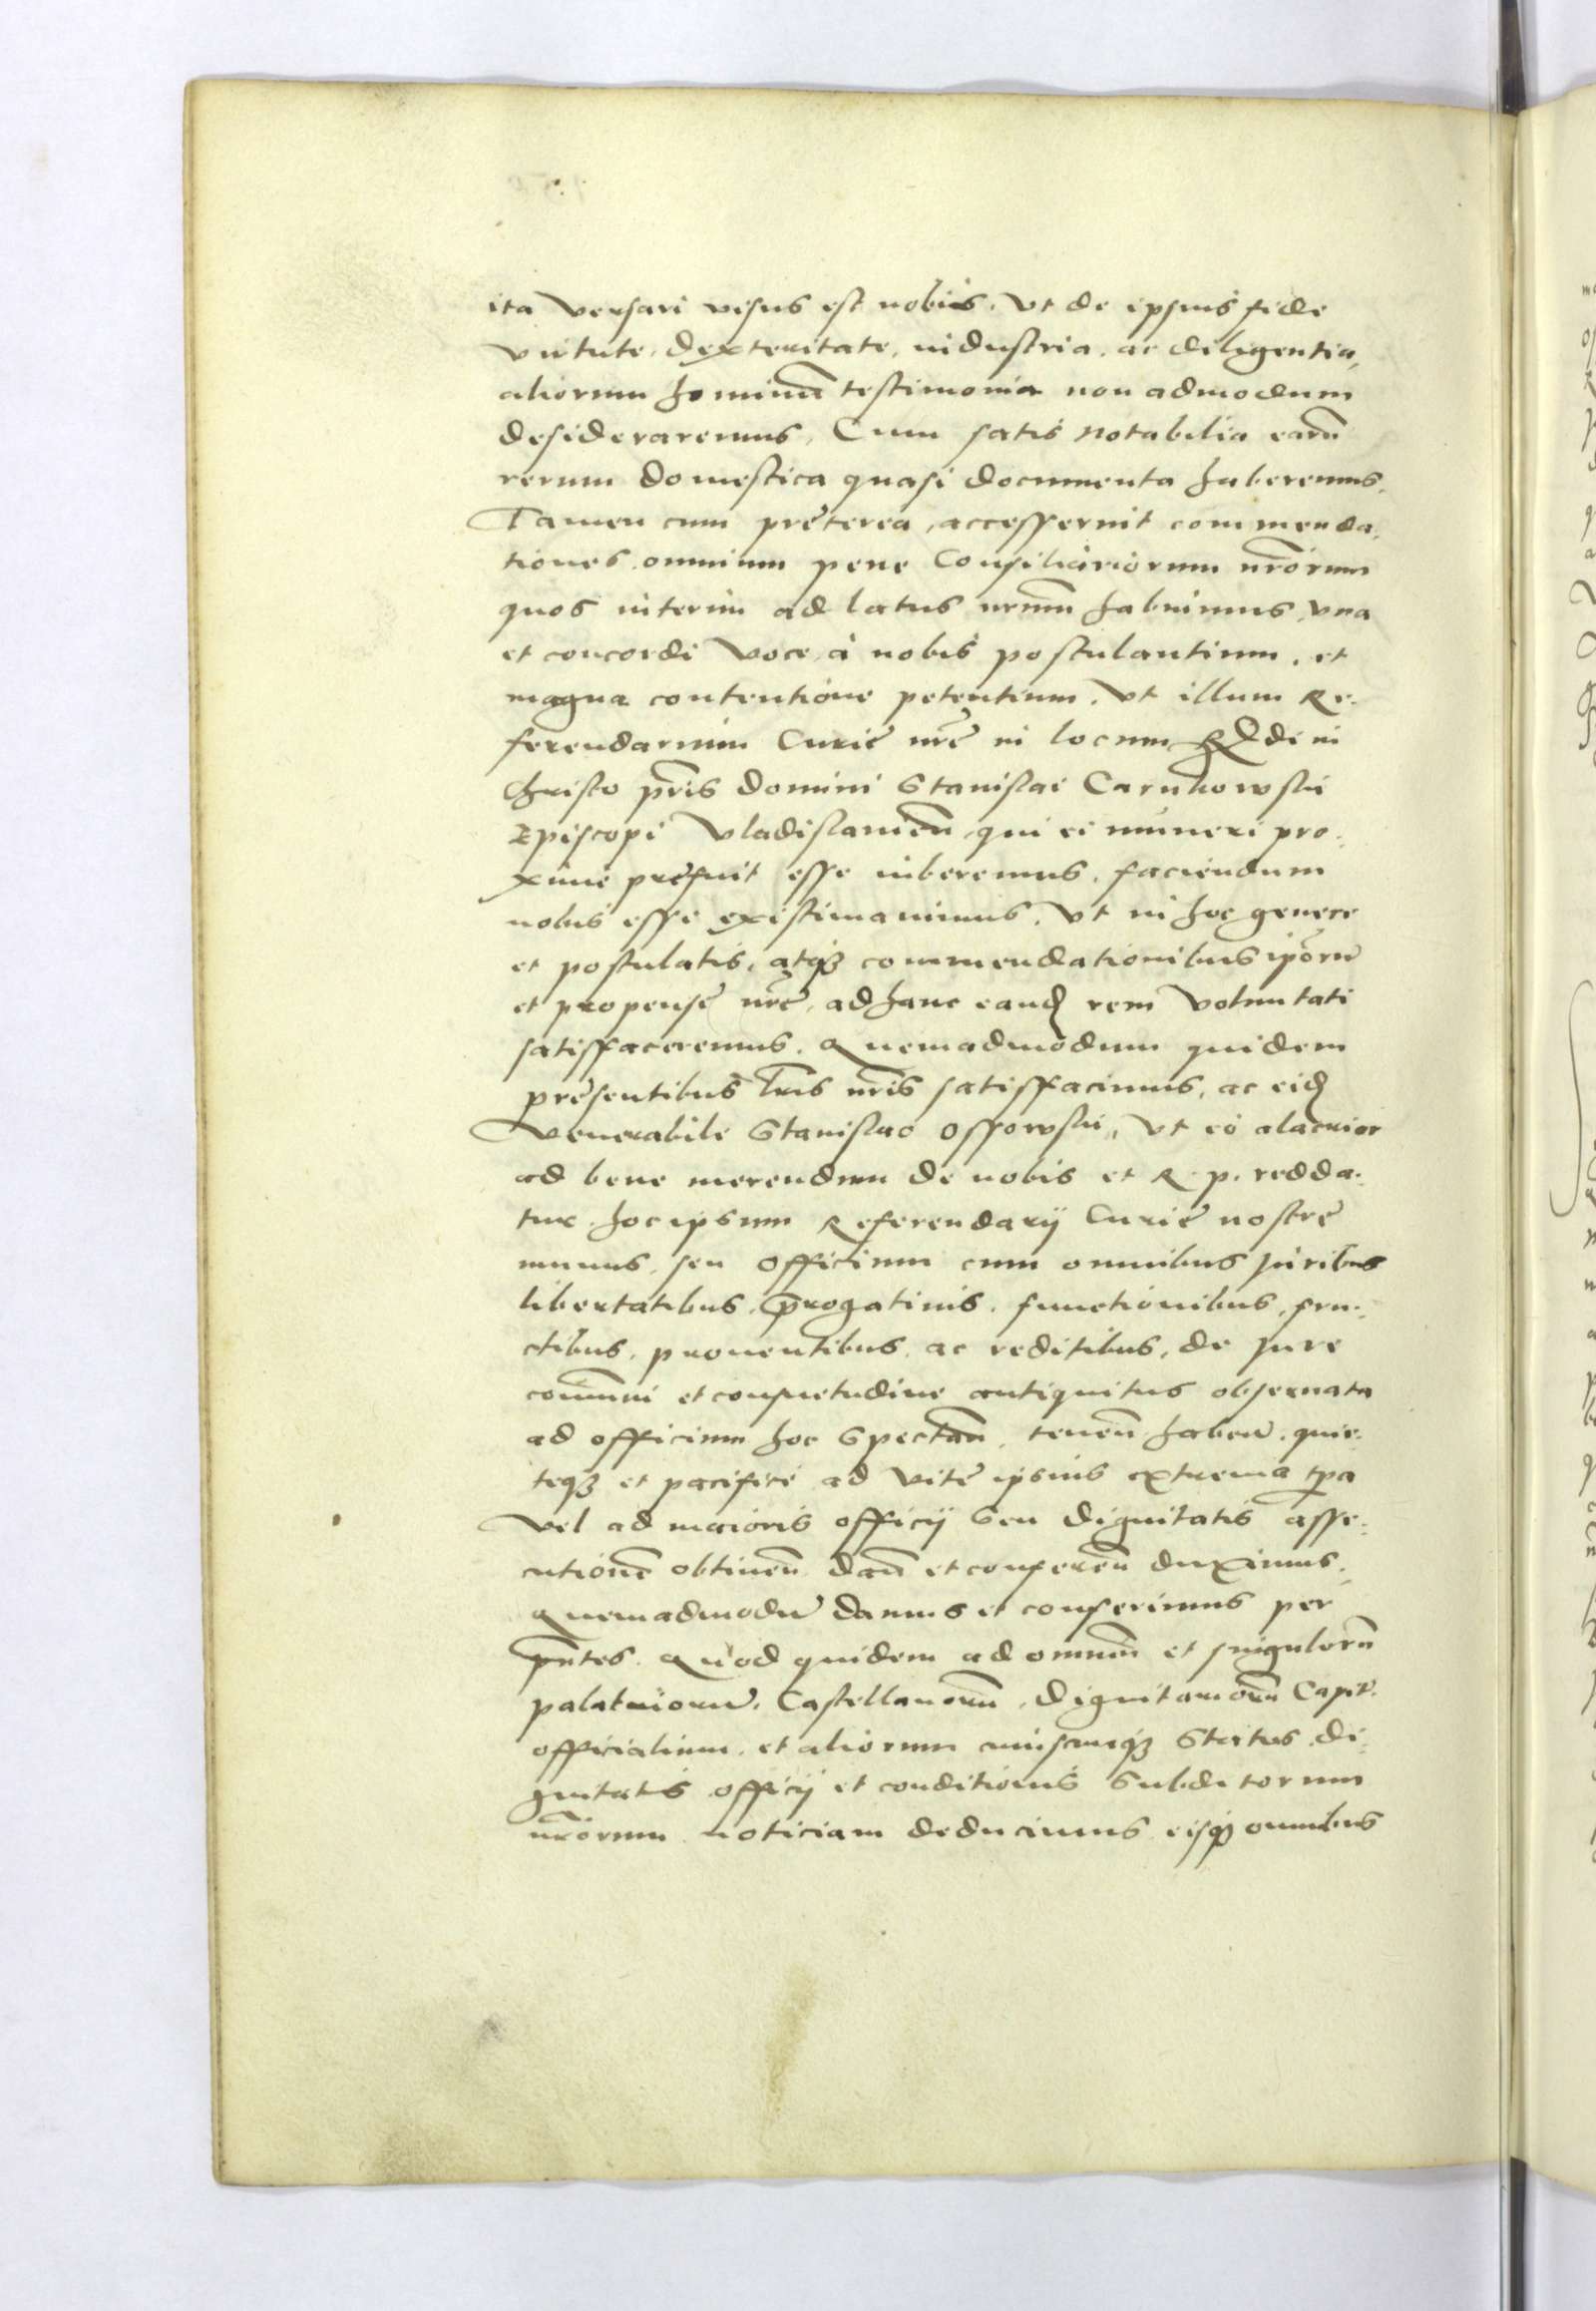 ita versari visus est nobis. Vt de ipsius fide
virtute, dexteritate, industria, ac diligentia,
aliorum hominū testimonia non admodum
desideraremus, Cum satis notabilia earū
rerum domestica quasi documenta haberemus.
Tamen cum pręterea, accesserint commenda,
tiones omnium pene Consiliariorum nr̄orum
quos interim ad latus nrūm habuimus, vna
et concordi voce à nobis postulantium, et
magna contentione petentium. Vt illum Re,
ferendarium Curię nrę in locum Rd̄i in
Christo pr̄is domini Stanislai Carnkowski
Episcopi Vladislauien̄ qui ei muneri pro,
xime pręfuit esse iuberemus, faciendum
nobis esse existimauimus, Vt in hoc genere
et postulatis, atqȝ commendationibus ip̄orū
et propensę nrę, ad hanc eand rem voluntati
satisfaceremus. Quemadmodum quidem
pręsentibus lr̄is nr̄is satisfacimus, ac eid
Venerabile Stanislao Ossowski, Vt eò alacrior
ad bene merendum de nobis et R. p. redda,
tur. hoc ipsum Referendarij Curię nostrę
munus, seu Officium cum omnibus Juribus
libertatibus, p̄rogatiuis, functionibus, fru,
ctibus, prouentibus, ac reditibus, de Jure
com̄uni et consuetudine antiquitus obseruata
ad officium hoc Spectan̄, tenen̄ haben̄, quie,
teqȝ et pacificè ad vitę ipsius extrema tp̄a
Vel ad maioris officij Seu dignitatis asse,
cutionē obtinen̄ dan̄ et conferen̄ duximus,
quemadmodū damus et conferimus per
pn̄tes. Quod quidem ad omnium et singulorū
palatinorū, Castellanorū, dignitariorū Capit.
officialium, et aliorum cuiuscunqȝ Status, di,
gnitatis officij et conditionis Subditorum
nr̄orum noticiam deducimus eisqȝ omnibus